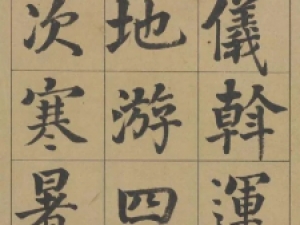 儀斡運
地游四
次寒暑